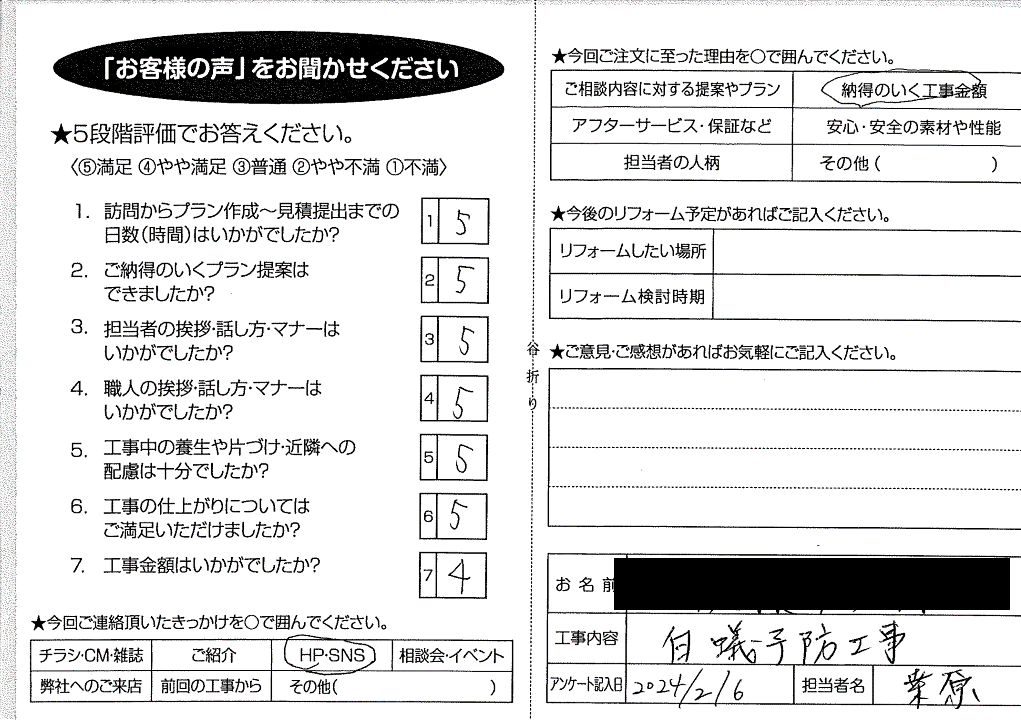 「お客様の声」をお聞かせください
★5段階評価でお答えください。
〈⑤満足 ④やや満足 ③普通 ②やや不満 ①不満〉
1. 訪問からプラン作成～見積提出までの
日数(時間)はいかがでしたか? 1 5
2. ご納得のいくプラン提案は
できましたか? 2 5
3. 担当者の挨拶・話し方・マナーは
いかがでしたか? 3 5
4. 職人の挨拶・話し方・マナーは
いかがでしたか? 4 5
5. 工事中の養生や片づけ・近隣への
配慮は十分でしたか? 5 5
6. 工事の仕上がりについては
ご満足いただけましたか? 6 5
7. 工事金額はいかがでしたか? 7 4
★今回ご連絡頂いたきっかけを○で囲んでください。
チラシ・CM・雑誌 ご紹介 HP・SNS 相談会・イベント
弊社へのご来店 前回の工事から その他( )
谷折り
★今回ご注文に至った理由を○で囲んでください。
ご相談内容に対する提案やプラン 納得のいく工事金額
アフターサービス・保証など 安心・安全の素材や性能
担当者の人柄 その他( )
★今後のリフォーム予定があればご記入ください。
リフォームしたい場所
リフォーム検討時期
★ご意見・ご感想があればお気軽にご記入ください。
お名前
工事内容 白蟻予防工事
アンケート記入日 2024/2/6 担当者名 葉原